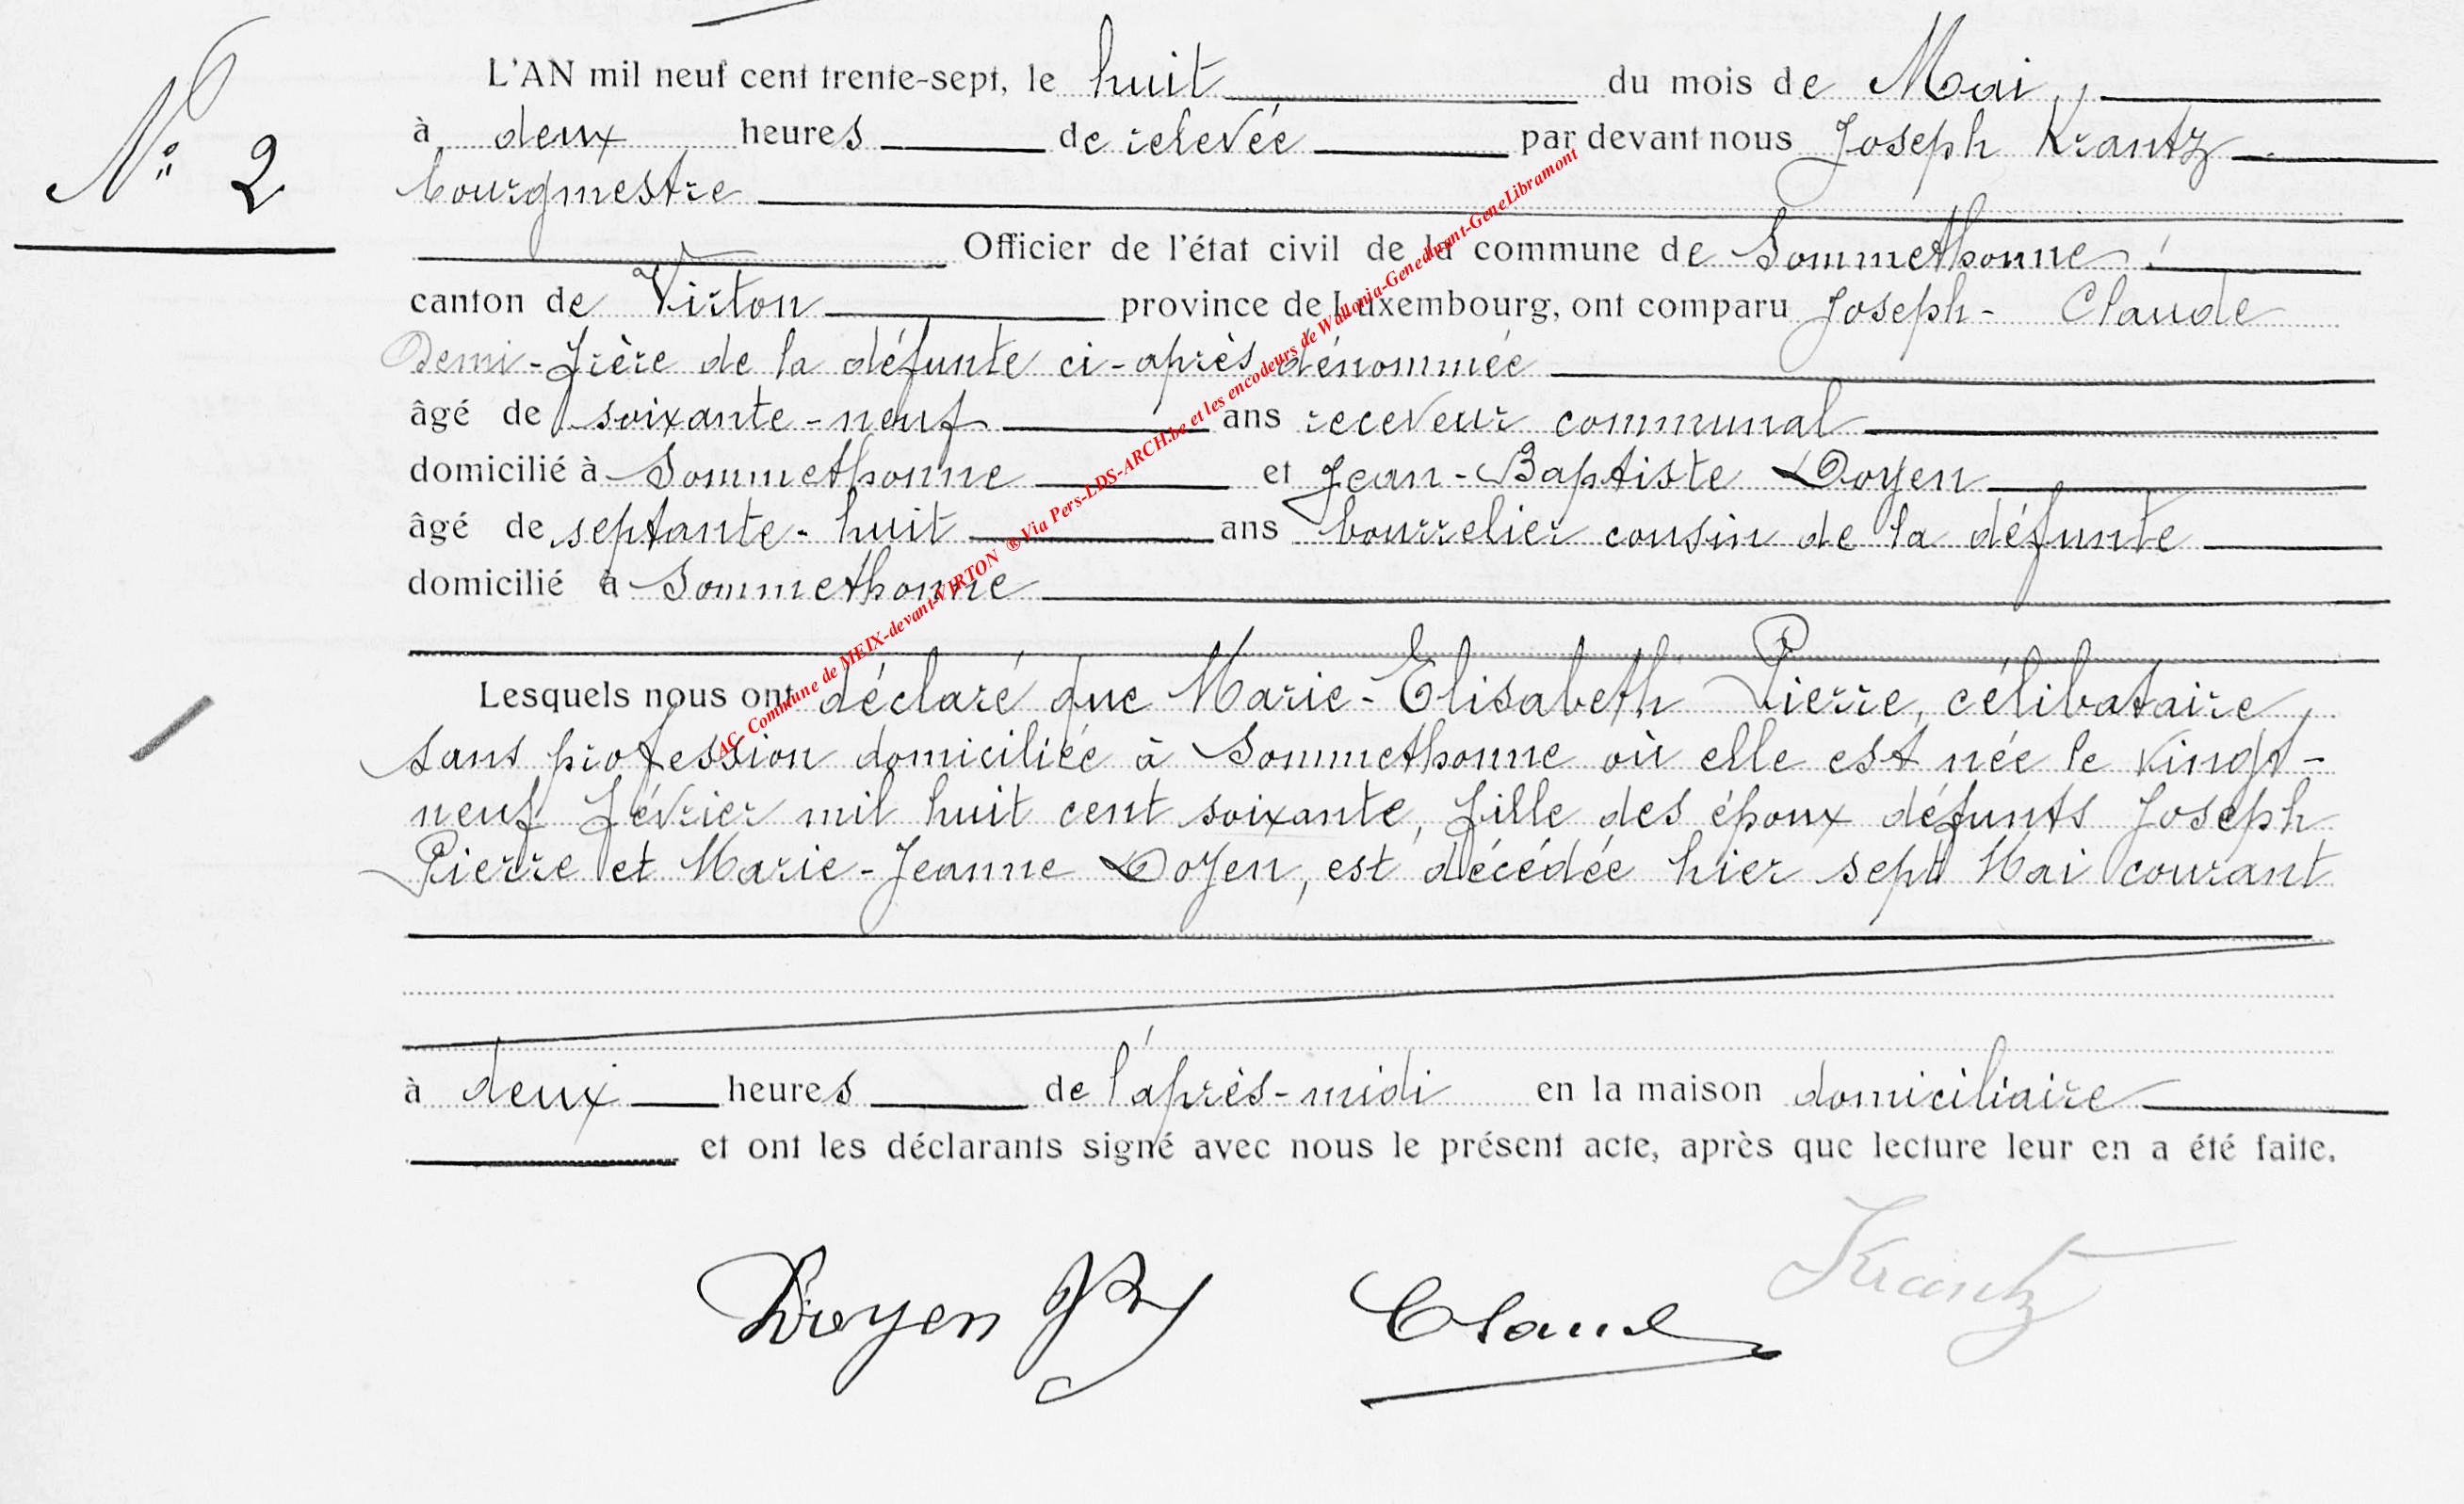 N° 2
L'AN mil neuf cent trente-sept, le huit du mois de Mai,
à deux heures de relevée par devant nous Joseph Krantz
bourgmestre
Officier de l'état civil de la commune de Sommethonne,
canton de Virton province de Luxembourg, ont comparu Joseph- Claude
Demi-frère de la défunte ci-après dénommée
âgé de soixante-neuf ans receveur communal
domicilié à Sommethonne et Jean-Baptiste Doyen
âgé de septante-huit ans bourrelier cousin de la défunte
domicilié à Sommethonne
Lesquels nous ont déclaré que Marie-Elisabeth Pierre, célibataire,
sans profession domiciliée à Sommethonne où elle est née le vingt-
neuf février mil huit cent soixante, fille des époux défunts Joseph
Pierre et Marie-Jeanne Doyen, est décédée hier sept Mai courant
à deux heures de l'après-midi en la maison domiciliaire
et ont les déclarants signé avec nous le présent acte, après que lecture leur en a été faite.
Doyen JB Claude Krantz
AC- Commune de MEIX-devant-VIRTON ® Via Pers-LDS-ARCH.be et les encodeurs de Wallonia-Genedinant-GeneLibramont